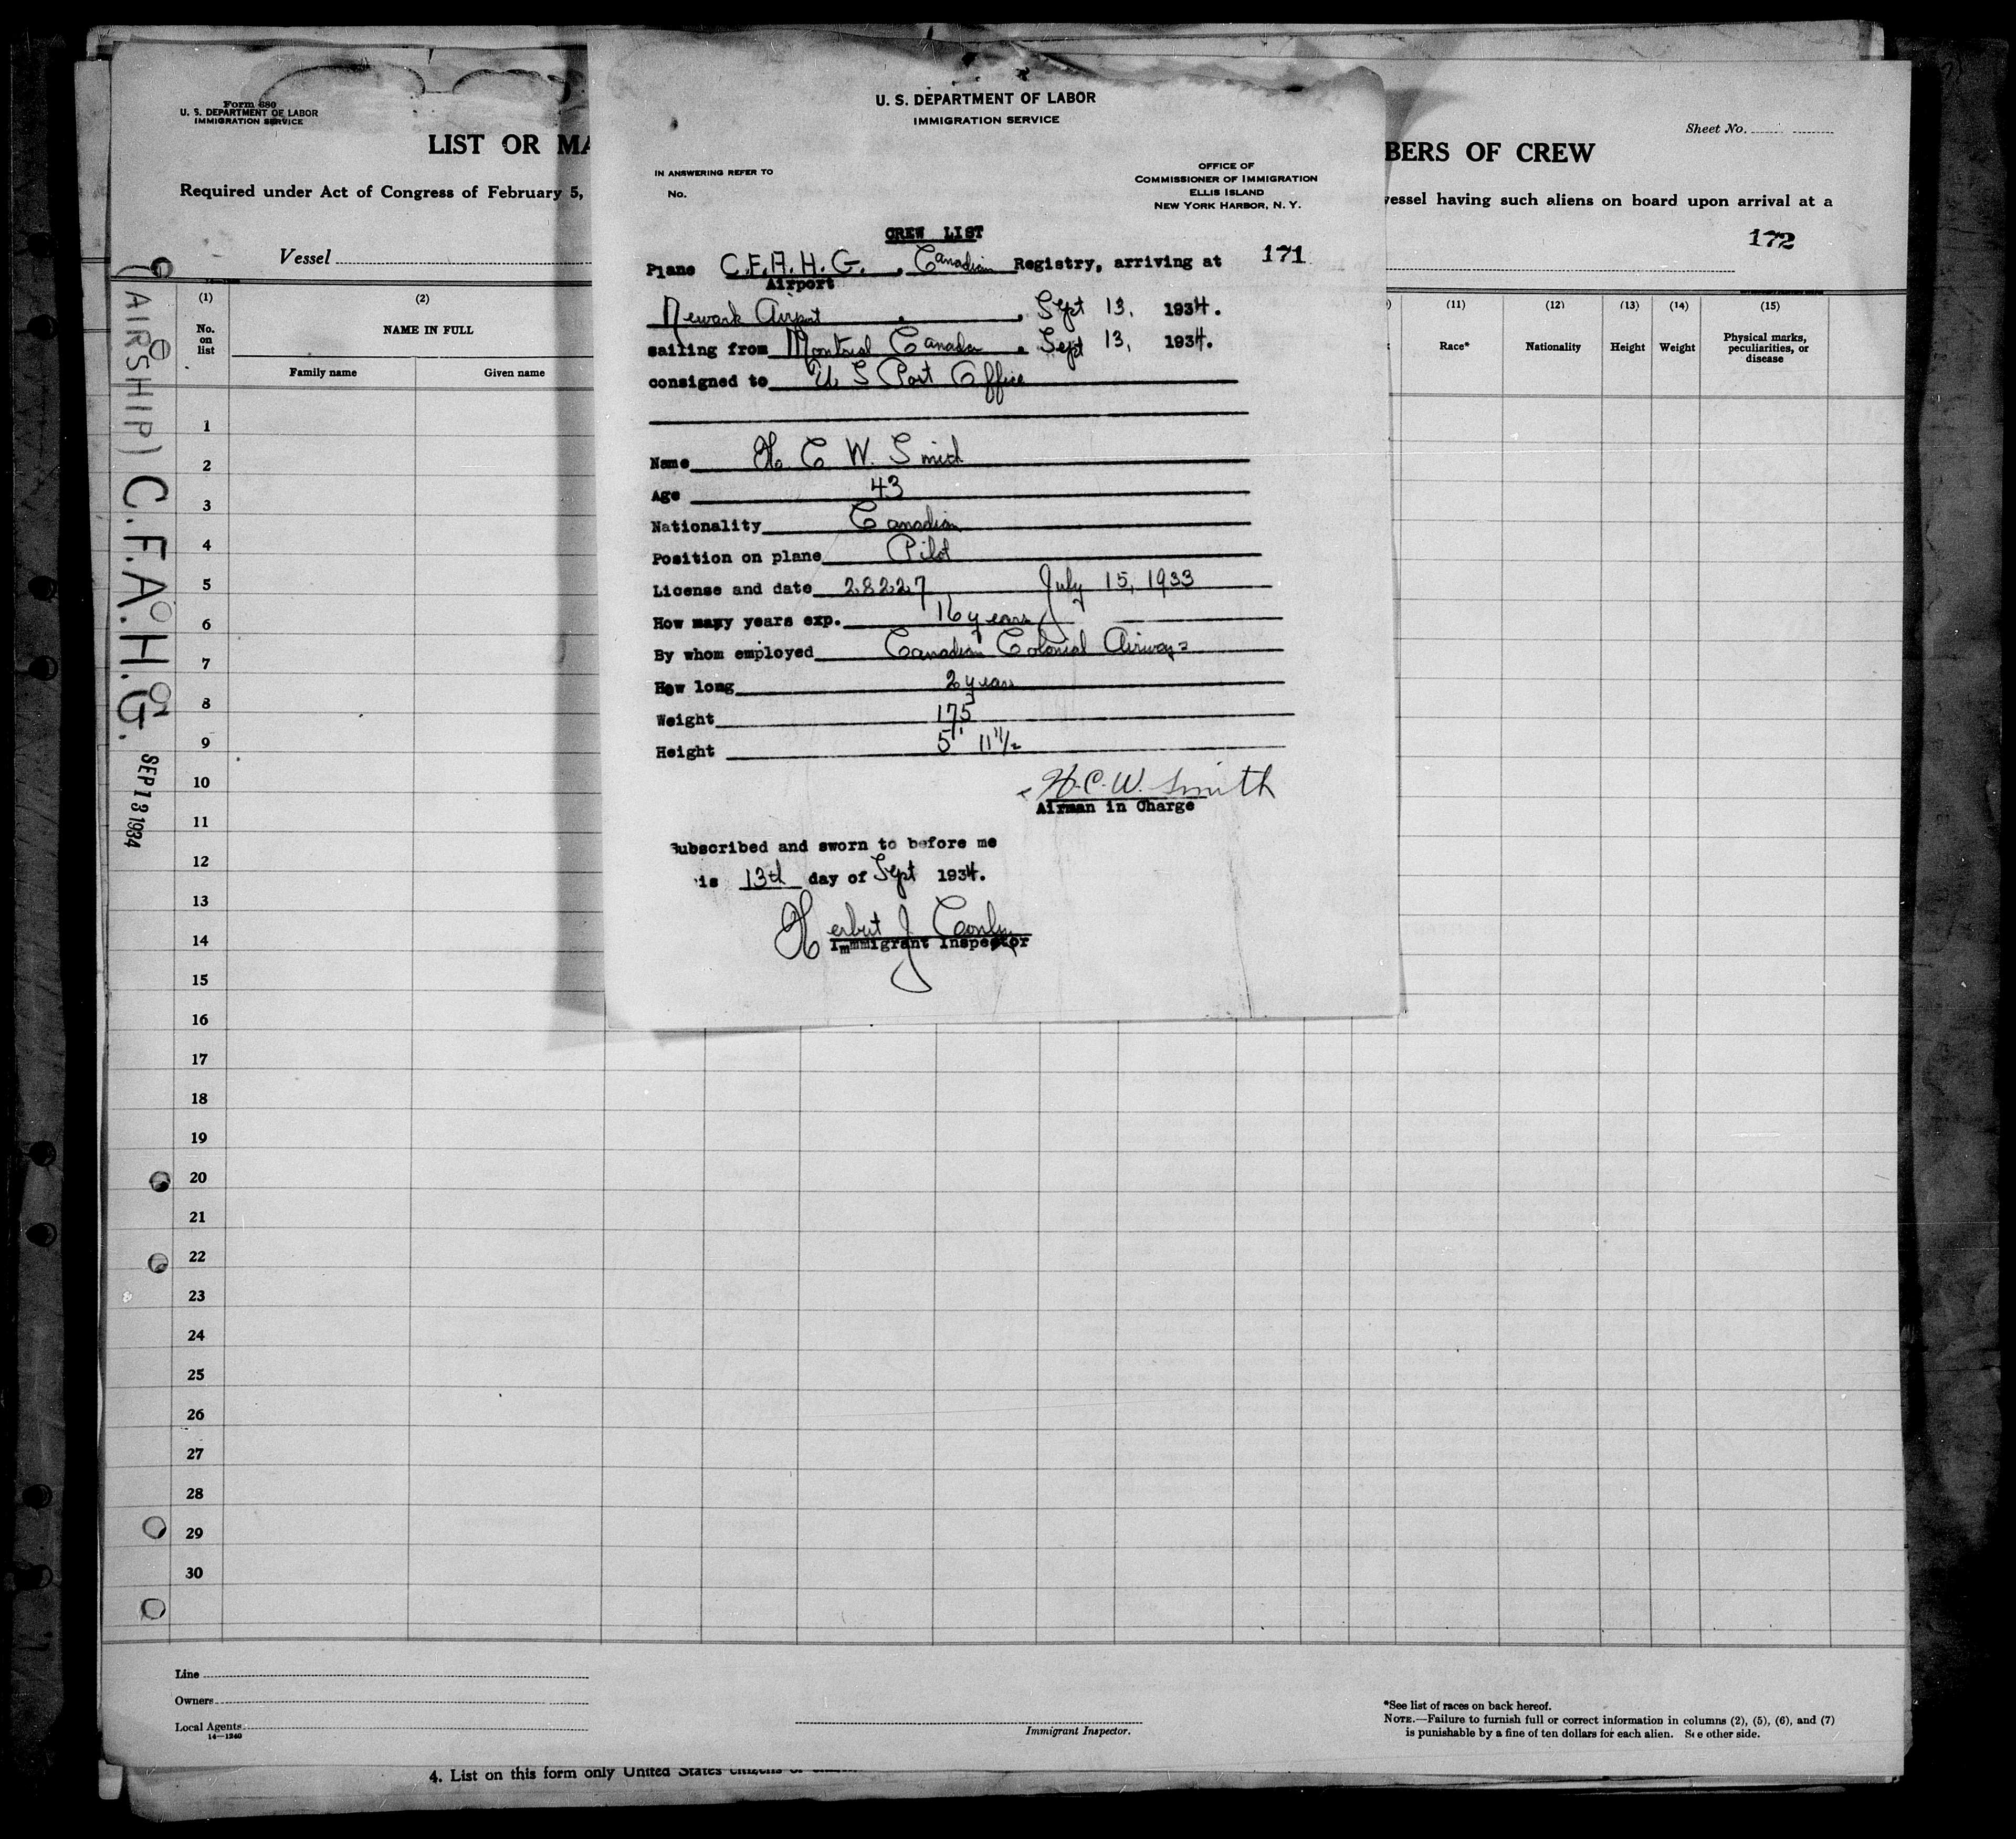 Form 680
U. S. DEPARTMENT OF LABOR
IMMIGRATION SERVICE
LIST OR MA
Required under Act of Congress of February 5,
Vessel
BERS OF CREW
Sheet No.
vessel having such aliens on board upon arrival at a
172
(1)
No.
on
list
(2)
NAME IN FULL
Family name
Given name
(11)
Race*
(12)
Nationality
(13)
Height
(14)
Weight
(15)
Physical marks,
peculiarities, or
disease
(AIRSHIP) C.F.A.H.G. SEP 13 1934
U. S. DEPARTMENT OF LABOR
IMMIGRATION SERVICE
IN ANSWERING REFER TO
No.
OFFICE OF
COMMISSIONER OF IMMIGRATION
ELLIS ISLAND
NEW YORK HARBOR, N. Y.
CREW LIST
171
Plane C.F.A.H.G. , Canadian Registry, arriving at
Airport
Newark Airport , Sept 13, 1934.
sailing from Montreal Canada , Sept 13, 1934.
consigned to U S Post Office
Name H C W. Smith
Age 43
Nationality Canadian
Position on plane Pilot
License and date 28227 July 15, 1933
How many years exp. 16 years
By whom employed Canadian Colonial Airways
How long 2 years
Weight 175
Height 5' 11 1/2"
H.C.W. Smith
Airman in Charge
Subscribed and sworn to before me
is 13th day of Sept 1934.
Herbert J
Immmigrant Inspector
1
2
3
4
5
6
7
8
9
10
11
12
13
14
15
16
17
18
19
20
21
22
23
24
25
26
27
28
29
30
Line
Owners
Local Agents
14—1240
Immigrant Inspector.
*See list of races on back hereof.
NOTE.—Failure to furnish full or correct information in columns (2), (5), (6), and (7)
is punishable by a fine of ten dollars for each alien. See other side.
4. List on this form only United States citizens